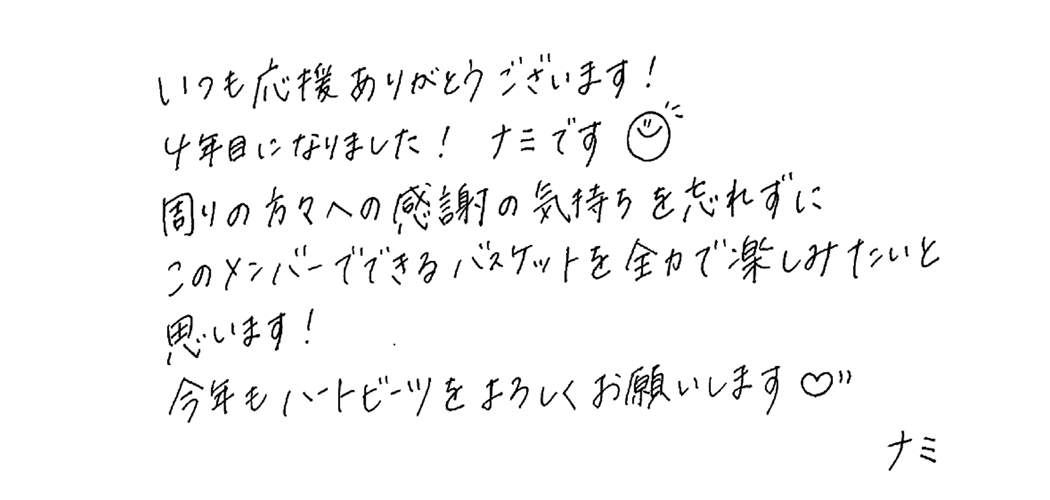 いつも応援ありがとうございます!
4年目になりました! ナミです
周りの方々への感謝の気持ちを忘れずに
このメンバーでできるバスケットを全力で楽しみたいと
思います!
今年もハートビーツをよろしくお願いします♡"
ナミ